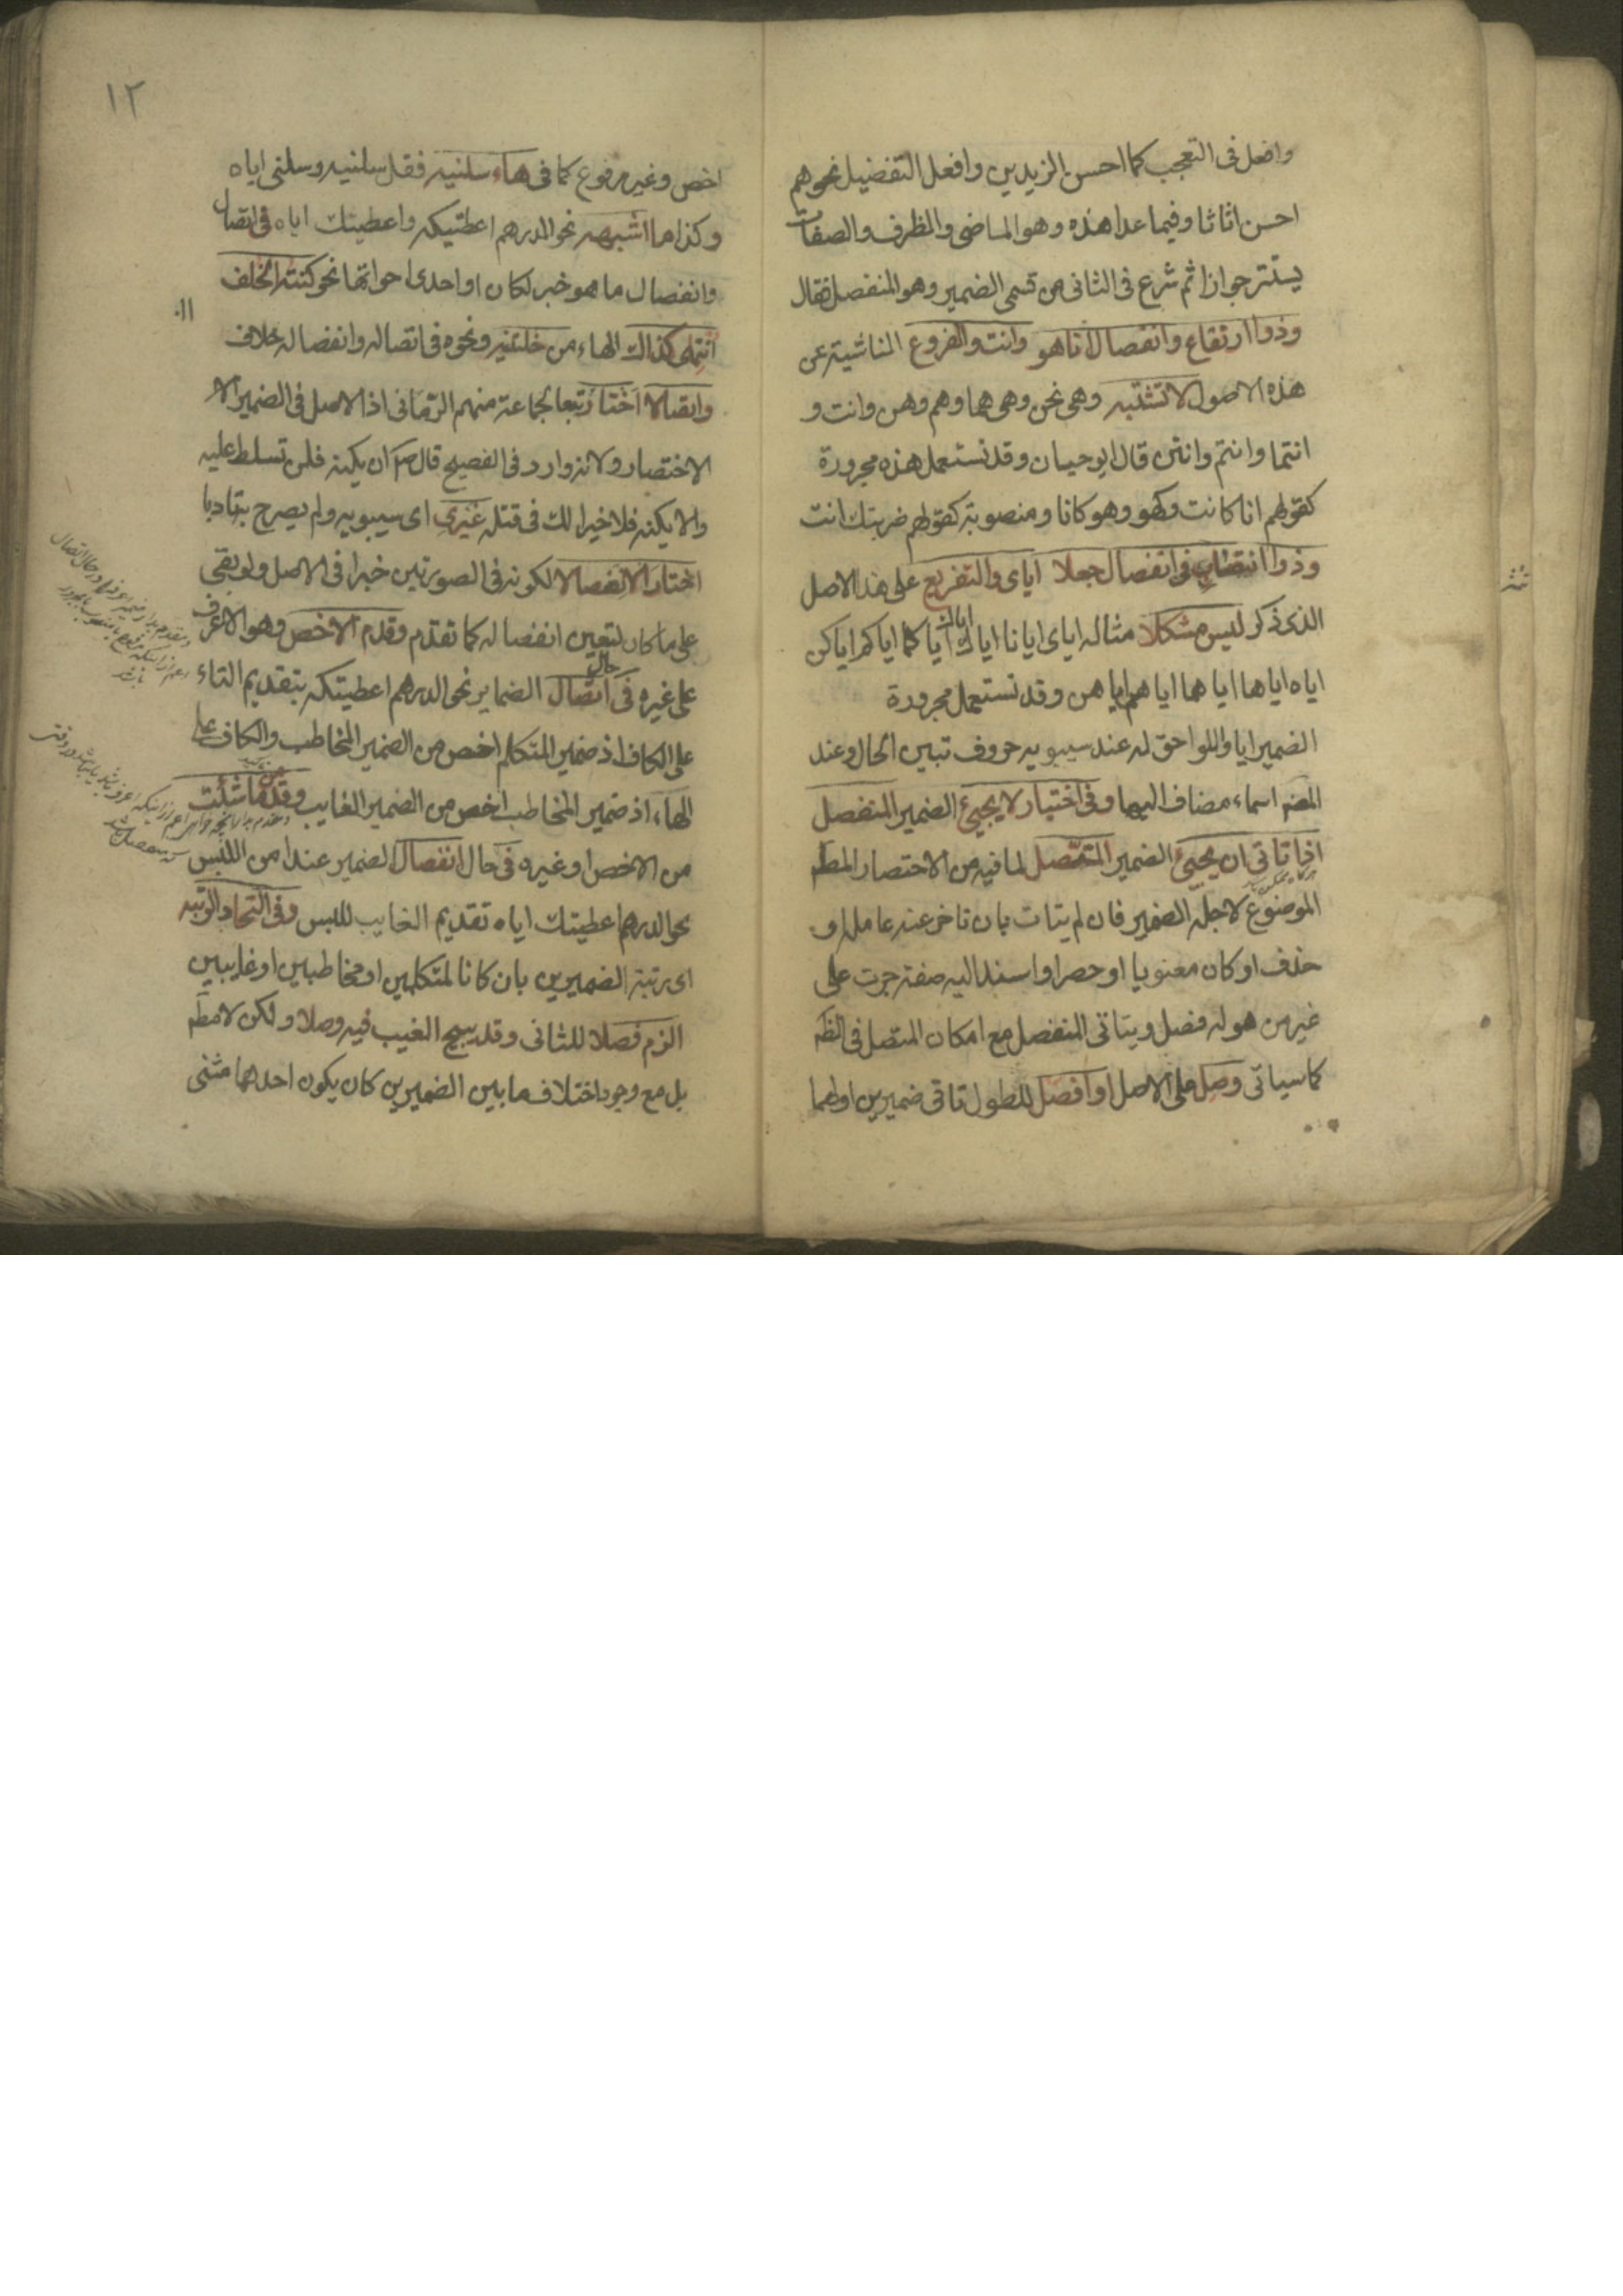 وافعل فى التعجب كما احسن الزيدين وافعل التفضيل نحو هم
احسن اثاثا وفيما عدا هذه وهو الماضى والظرف والصفات
يستتر جوازا ثم شرع فى الثانى من قسمى الضمير وهو المنفصل فقال
وذوا ارتفاع وانفصال انا هو وانت والفروع الناشية عن
هذه الاصول لا تشتبه وهى نحن وهى هما وهم وهن وانت و
انتما وانتم وانتن قال ابو حيان وقد تستعمل هذه مجرورة
كقولهم انا كانت وكهو وهو كانا ومنصوبة كقولهم ضربتك انت
وذوا انتصاب فى انفصال جعلا اياى والتفريع على هذا الاصل
الذى ذكر ليس مشكلا مثاله اياى ايانا اياك اياك اياكما اياكم اياكن
اياه اياها اياهما اياهم اياهن وقد تستعمل مجرورة
الضمير ايا واللواحق له عند سيبويه حروف تبين الحال وعند
المصَ اسماء مضاف اليها وفى اختيار لا يجيئ الضمير المنفصل
اذا تاتى ان يجيئ الضمير المتصل لما فيه من الاختصار المطَ
الموضوع لاجله الضمير فان لم يتات بان تاخر عنه عامله او
حذف او كان معنويا او حصر او اسند اليه صفة جرت على
غير من هو له فصل ويتاتى المنفصل مع امكان المتصل فى الظَ
كما سياتى وصل على الاصل او افصل للطول تاتى ضميرين اولهما
١٢
اخص وغير مرفوع كما فى هاء سلنيه فقل سلنيه وسلنى اياه
وكذا ما اشبهه نحو الدرهم اعطيتكه واعطيتك اياه فى اتصال
وانفصال ما هو خبر لكان او احدى اخواتها نحو كنته الخلف
انتمى كذاك الهاء من خلتنيه ونحوه فى اتصاله وانفصاله خلاف
واتصالا اختار تبعا لجماعة منهم الرمانى اذ الاصل فى الضمير الا
الاختصار ولانه وارد فى الفصيح قال صَ ان يكنه فلن تسلط عليه
والا يكنه فلا خير لك فى قتله غيرى اى سيبويه ولم يصرح به تادبا
اختار الانفصالا لكونه فى الصورتين خبرا فى الاصل ولو بقى
على ما كان لتعين انفصاله كما تقدم وقدم الاخص وهو الاعرف
على غيره فى حال اتصال الضماير نحو الدرهم اعطيتكه بتقديم التاء
على الكاف اذ ضمير المتكلم اخص من الضمير المخاطب والكاف على
الهاء اذ ضمير المخاطب اخص من الضمير الغايب وقدمن ما شئت
من الاخص او غيره فى حال انفصال الضمير عند امن اللبس
نحو الدرهم اعطيتك اياه تقديم الغايب للبس وفى اتحاد الرتبه
اى رتبة الضميرين بان كانا لمتكلمين او مخاطبين او غايبين
الزم فصلا للثانى وقد يبيح الغيب فيه وصلا ولكن لا مطَ
بل مع وجود اختلاف ما بين الضميرين كان يكون احدهما مثنى